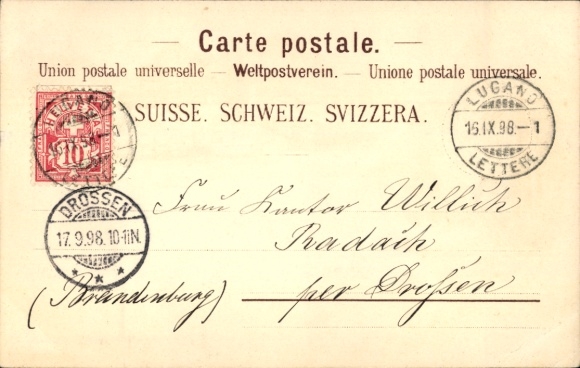 Carte postale.
Union postale universelle — Weltpostverein. — Unione postale universale.
SUISSE. SCHWEIZ. SVIZZERA.
HELVETIA
10
LUGANO
16.IX.98.–1
LETTERE
LUGANO
16.IX.98.–1
LETTERE
DROSSEN
17.9.98.10-11N.
Frau Kantor Willich
Radach
(Brandenburg) per Drossen